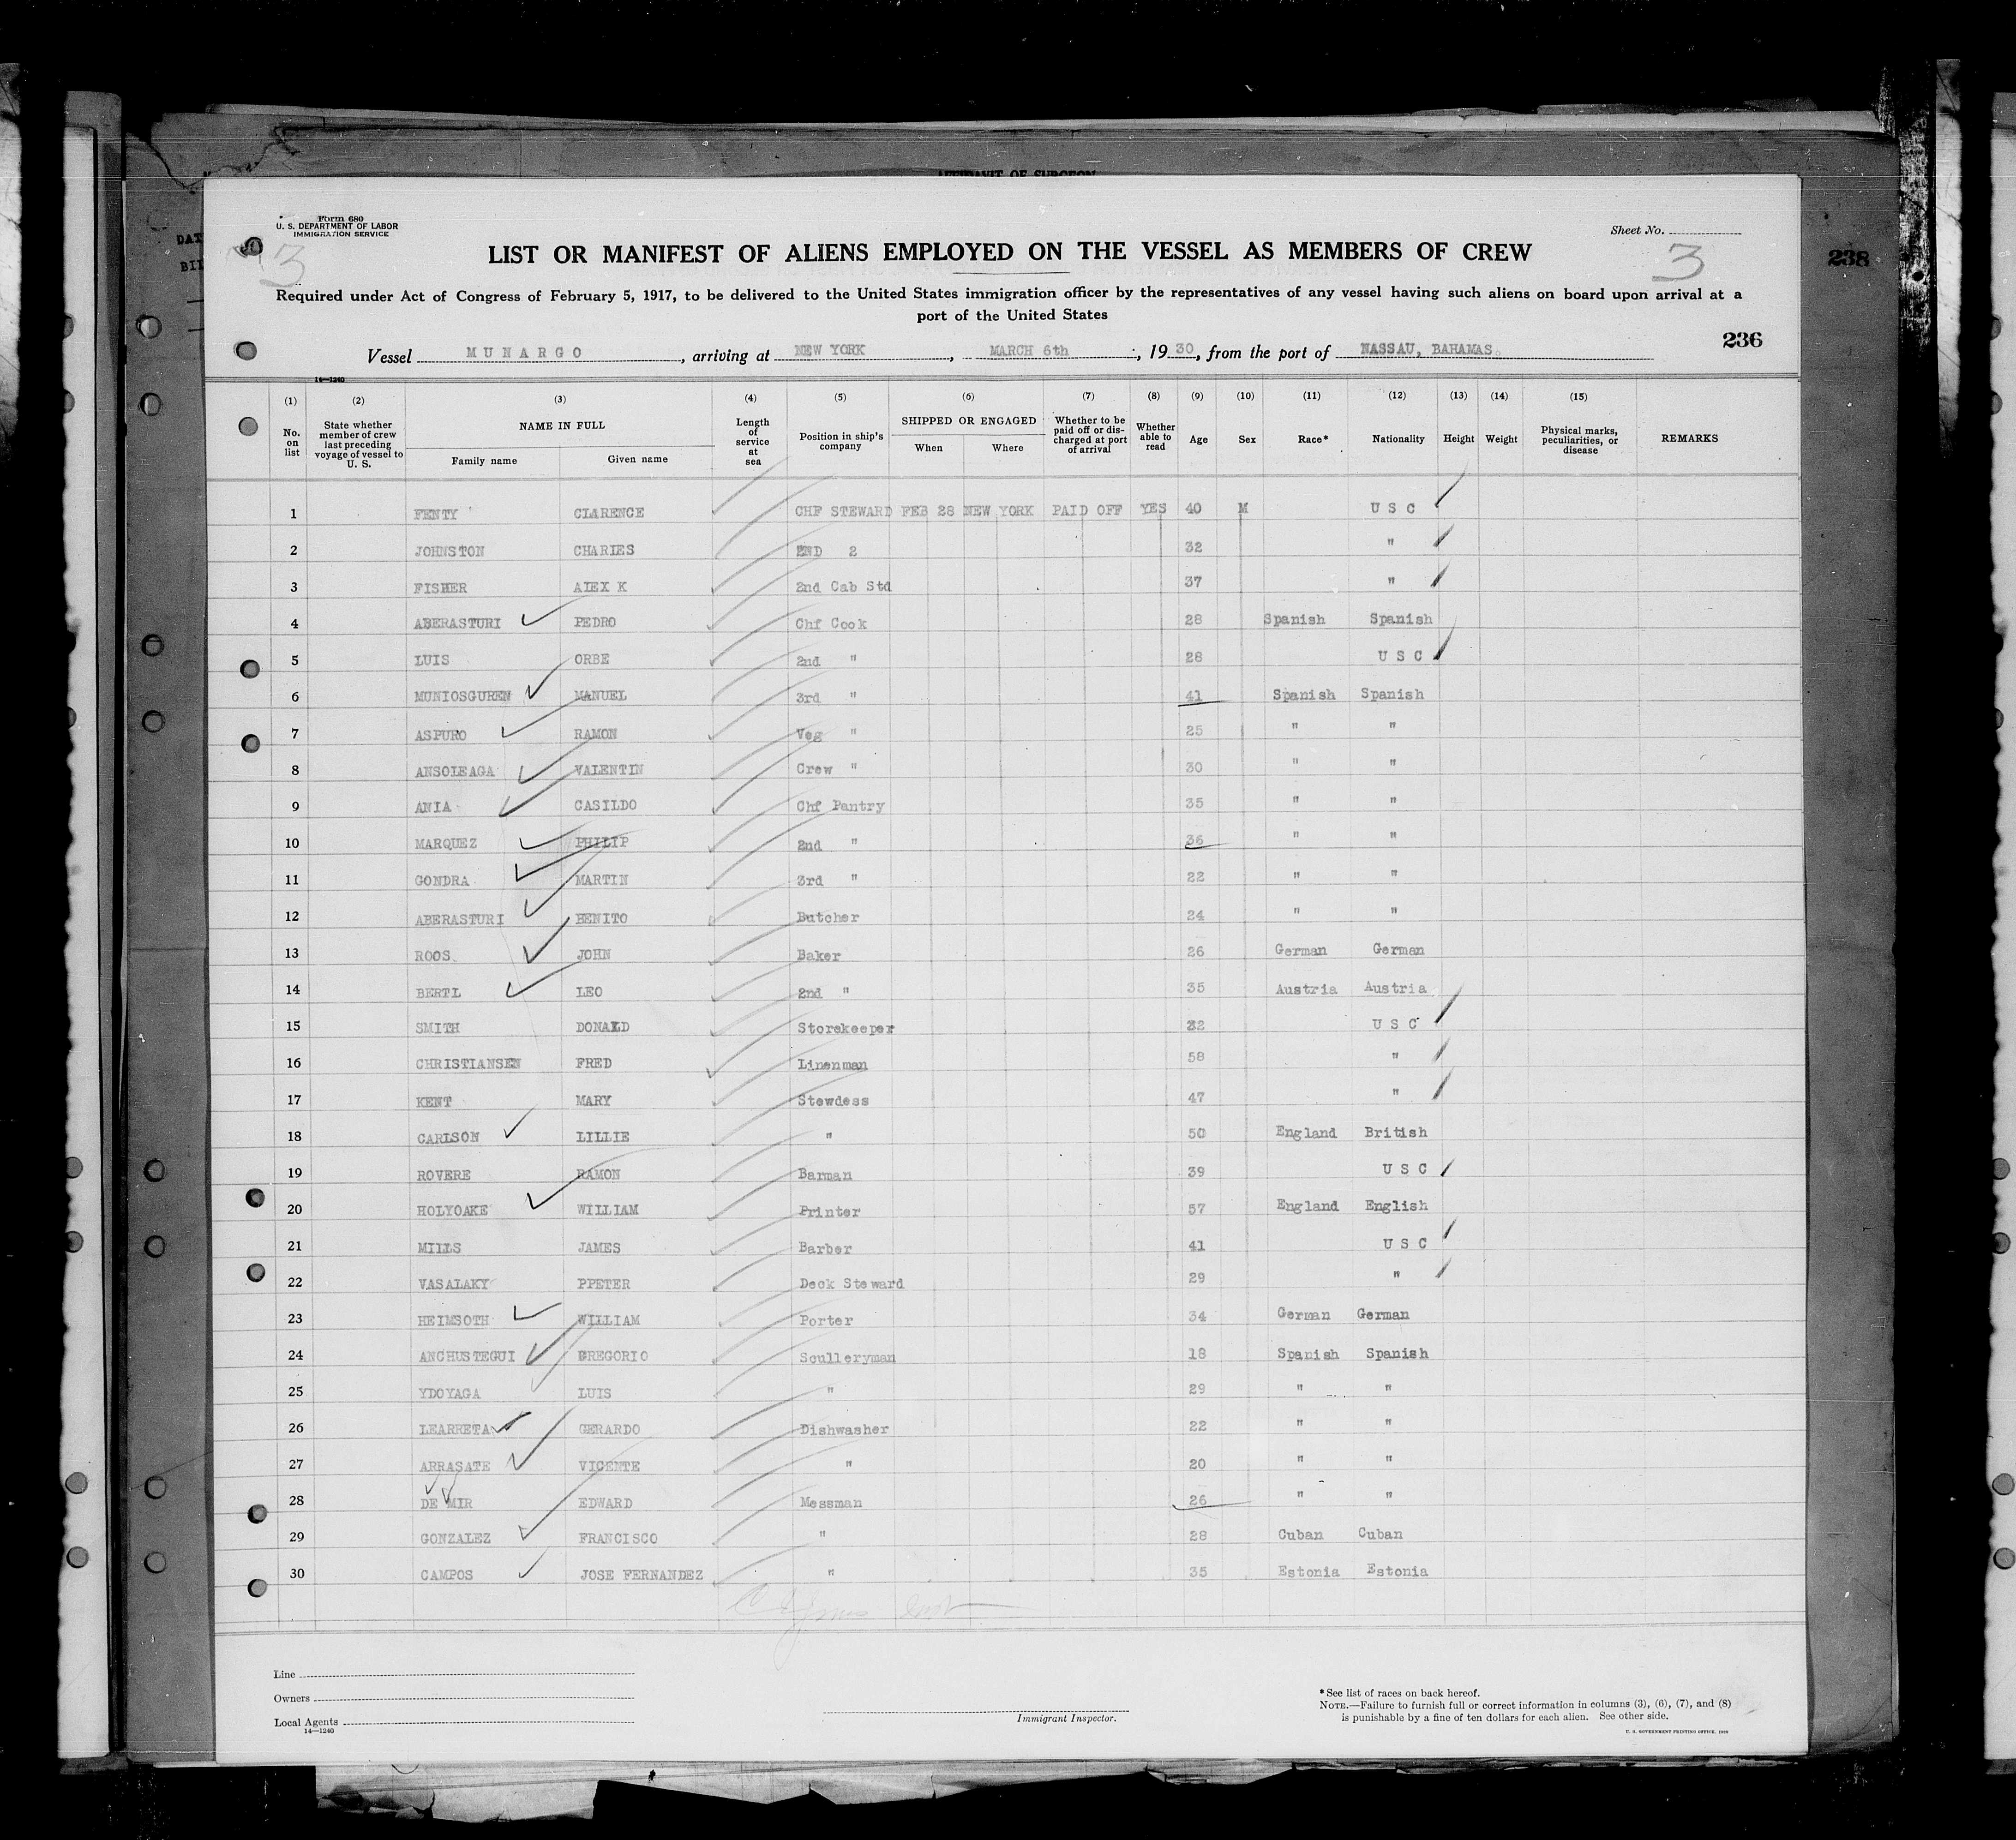 AFFIDAVIT OF SURGEON
Form 680
U. S. DEPARTMENT OF LABOR
IMMIGRATION SERVICE
Sheet No.
3
3
LIST OR MANIFEST OF ALIENS EMPLOYED ON THE VESSEL AS MEMBERS OF CREW
238
Required under Act of Congress of February 5, 1917, to be delivered to the United States immigration officer by the representatives of any vessel having such aliens on board upon arrival at a
port of the United States
236
Vessel MUNARGO, arriving at NEW YORK, MARCH 6th, 1930, from the port of NASSAU, BAHAMAS.
14—1240
(1) No. on list (2) State whether member of crew last preceding voyage of vessel to U. S. (3) NAME IN FULL Family name Given name (4) Length of service at sea (5) Position in ship's company (6) SHIPPED OR ENGAGED When Where (7) Whether to be paid off or discharged at port of arrival (8) Whether able to read (9) Age (10) Sex (11) Race* (12) Nationality (13) Height (14) Weight (15) Physical marks, peculiarities, or disease REMARKS
1 FENTY CLARENCE CHF STEWARD FEB 28 NEW YORK PAID OFF YES 40 M U S C
2 JOHNSTON CHARLES 2ND 2 32 "
3 FISHER ALEX K 2nd Cab Std 37 "
4 ABERASTURI PEDRO Chf Cook 28 Spanish Spanish
5 LUIS ORBE 2nd " 28 U S C
6 MUNIOSGUREN MANUEL 3rd " 41 Spanish Spanish
7 ASPURO RAMON Veg " 25 " "
8 ANSOLEAGA VALENTIN Crew " 30 " "
9 ANIA CASILDO Chf Pantry 35 " "
10 MARQUEZ PHILIP 2nd " 36 " "
11 GONDRA MARTIN 3rd " 22 " "
12 ABERASTURI BENITO Butcher 24 " "
13 ROOS JOHN Baker 26 German German
14 BERTL LEO 2nd " 35 Austria Austria
15 SMITH DONALD Storekeeper 32 U S C
16 CHRISTIANSEN FRED Linenman 58 "
17 KENT MARY Stewdess 47 "
18 CARLSON LILLIE " 50 England British
19 ROVERE RAMON Barman 39 U S C
20 HOLYOAKE WILLIAM Printer 57 England English
21 MILLS JAMES Barber 41 U S C
22 VASALAKY PPETER Deck Steward 29 "
23 HEIMSOTH WILLIAM Porter 34 German German
24 ANCHUSTEGUI GREGORIO Sculleryman 18 Spanish Spanish
25 YDOYAGA LUIS " 29 " "
26 LEARRETA GERARDO Dishwasher 22 " "
27 ARRASATE VICENTE " 20 " "
28 DE MIR EDWARD Messman 26 " "
29 GONZALEZ FRANCISCO " 28 Cuban Cuban
30 CAMPOS JOSE FERNANDEZ " 35 Estonia Estonia
Line
Owners
Local Agents
14—1240
Immigrant Inspector.
*See list of races on back hereof.
NOTE.—Failure to furnish full or correct information in columns (3), (6), (7), and (8)
is punishable by a fine of ten dollars for each alien. See other side.
U. S. GOVERNMENT PRINTING OFFICE